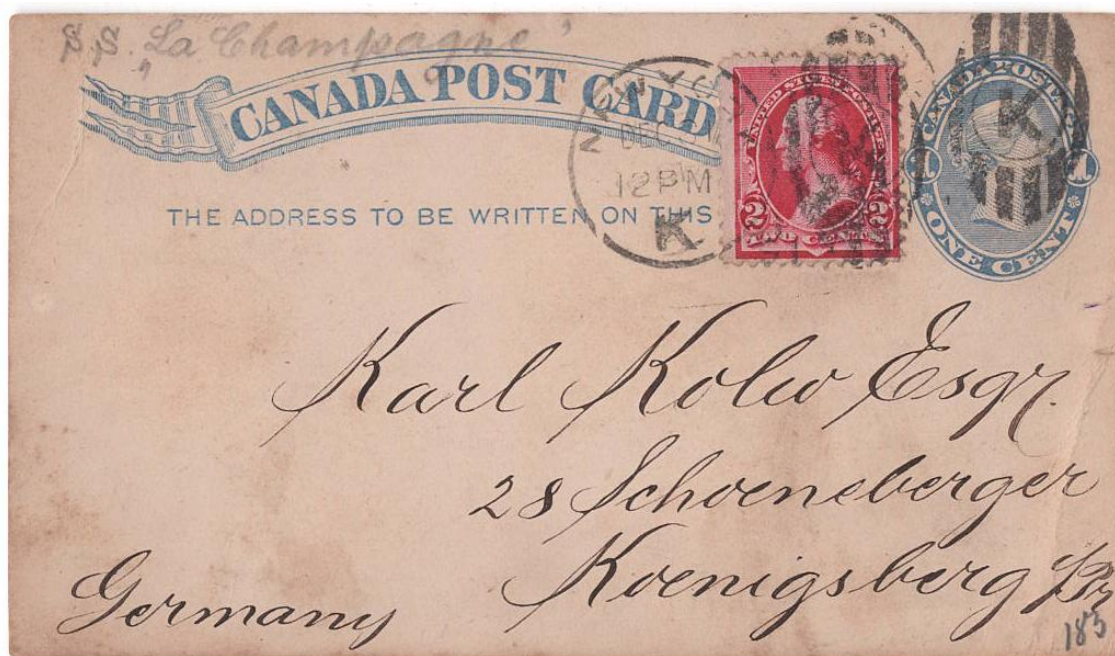 S.S. "La Champagne"
CANADA POST CARD
THE ADDRESS TO BE WRITTEN ON THIS
NEW YO
DEC
12 PM
K
UNITED STATES
2 2
TWO CENTS
CANADA POSTAGE
K
1 1
ONE CENT
Karl Kolw Esqr.
28 Schoeneberger
Koenigsberg Pr
Germany
185